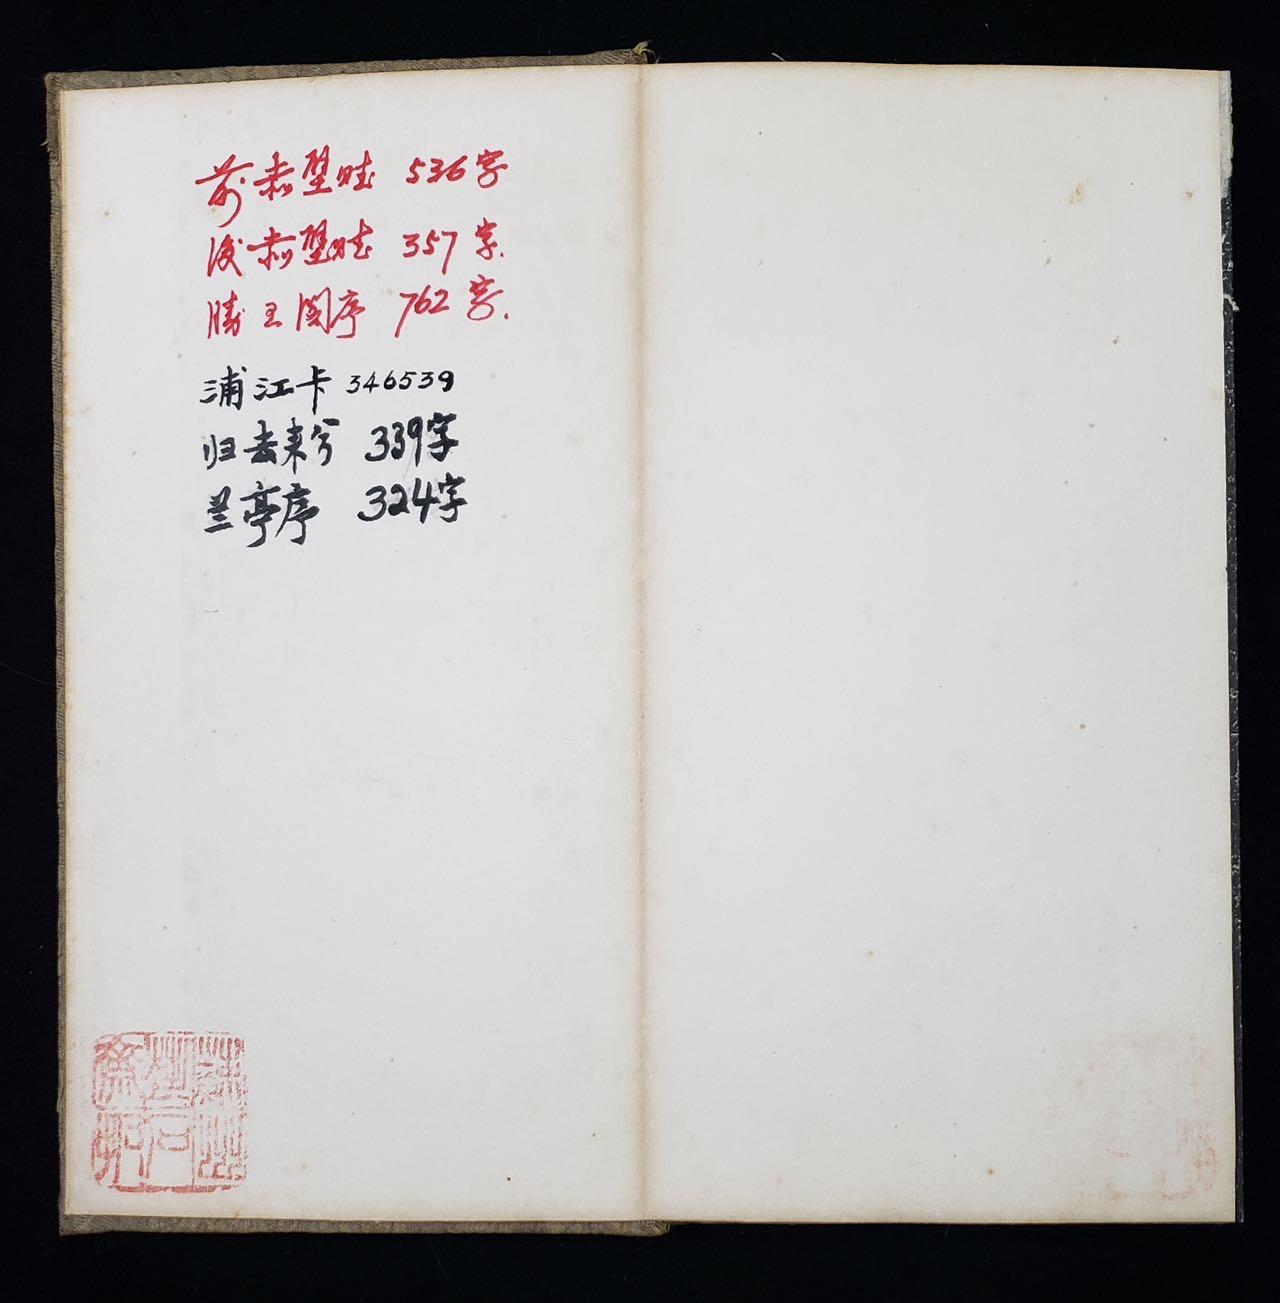 前赤壁赋 536字
後赤壁赋 357字.
滕王阁序 762字.
浦江卡 346539
归去来兮 339字
兰亭序 324字